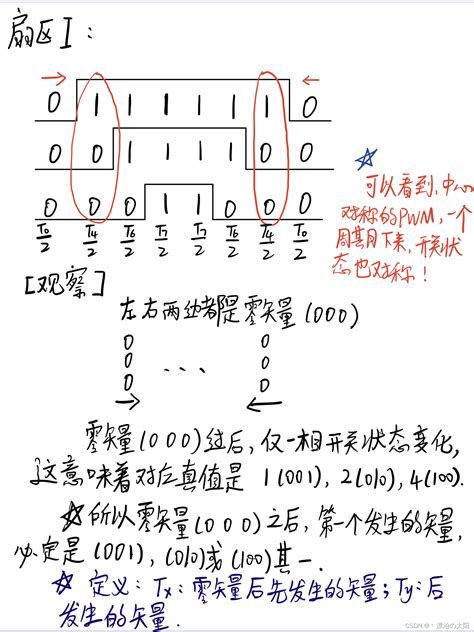 扇区I:
0 1 1 1 1 1 1 0
0 0 1 1 1 1 0 0
0 0 0 1 1 0 0 0
T0/2 T4/2 T6/2 T7/2 T7/2 T6/2 T4/2 T0/2
☆
可以看到,中心
对称的PWM,一个
周期下来,开关状
态也对称!
[观察]
左右两边都是零矢量(000)
0 0
0 ... 0
0 0
零矢量(000)过后,仅一相开关状态变化,
这意味着对应真值是 1(001), 2(010), 4(100).
☆所以零矢量(000)之后,第一个发生的矢量,
必定是(001), (010)或(100)其一.
☆ 定义: Tx: 零矢量后先发生的矢量; Ty: 后
发生的矢量.
CSDN @丶漂泊の太阳